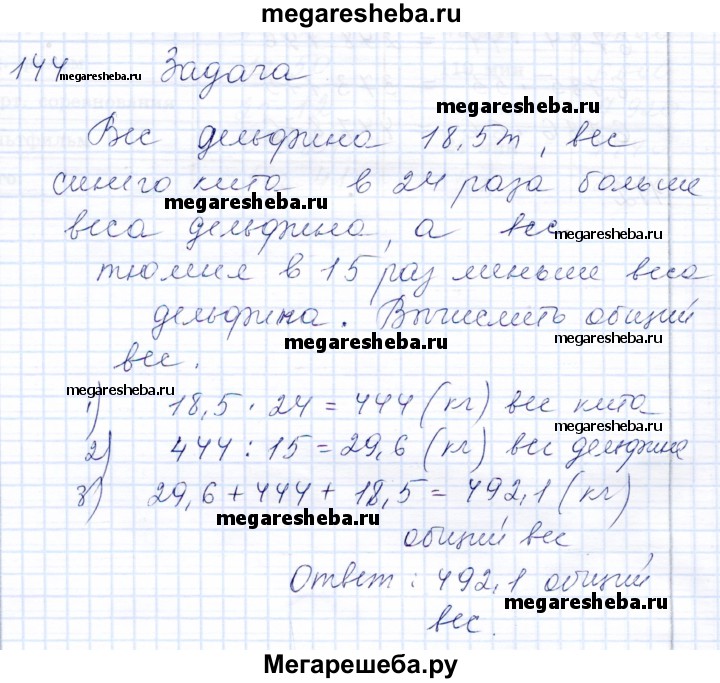 megaresheba.ru
144 megaresheba.ru Задача
megaresheba.ru
Вес дельфина 18,5т, вес
синего кита в 24 раза больше
megaresheba.ru
веса дельфина, а вес
megaresheba.ru
тюленя в 15 раз меньше веса
дельфина. Вычислить общий
megaresheba.ru
megaresheba.ru
вес.
megaresheba.ru
1) 18,5 · 24 = 444 (кг) вес кита
megaresheba.ru
2) 444 : 15 = 29,6 (кг) вес дельфина
3) 29,6 + 444 + 18,5 = 492,1 (кг)
megaresheba.ru
общий вес
Ответ: 492,1 общий
megaresheba.ru
вес.
Мегарешеба.ру